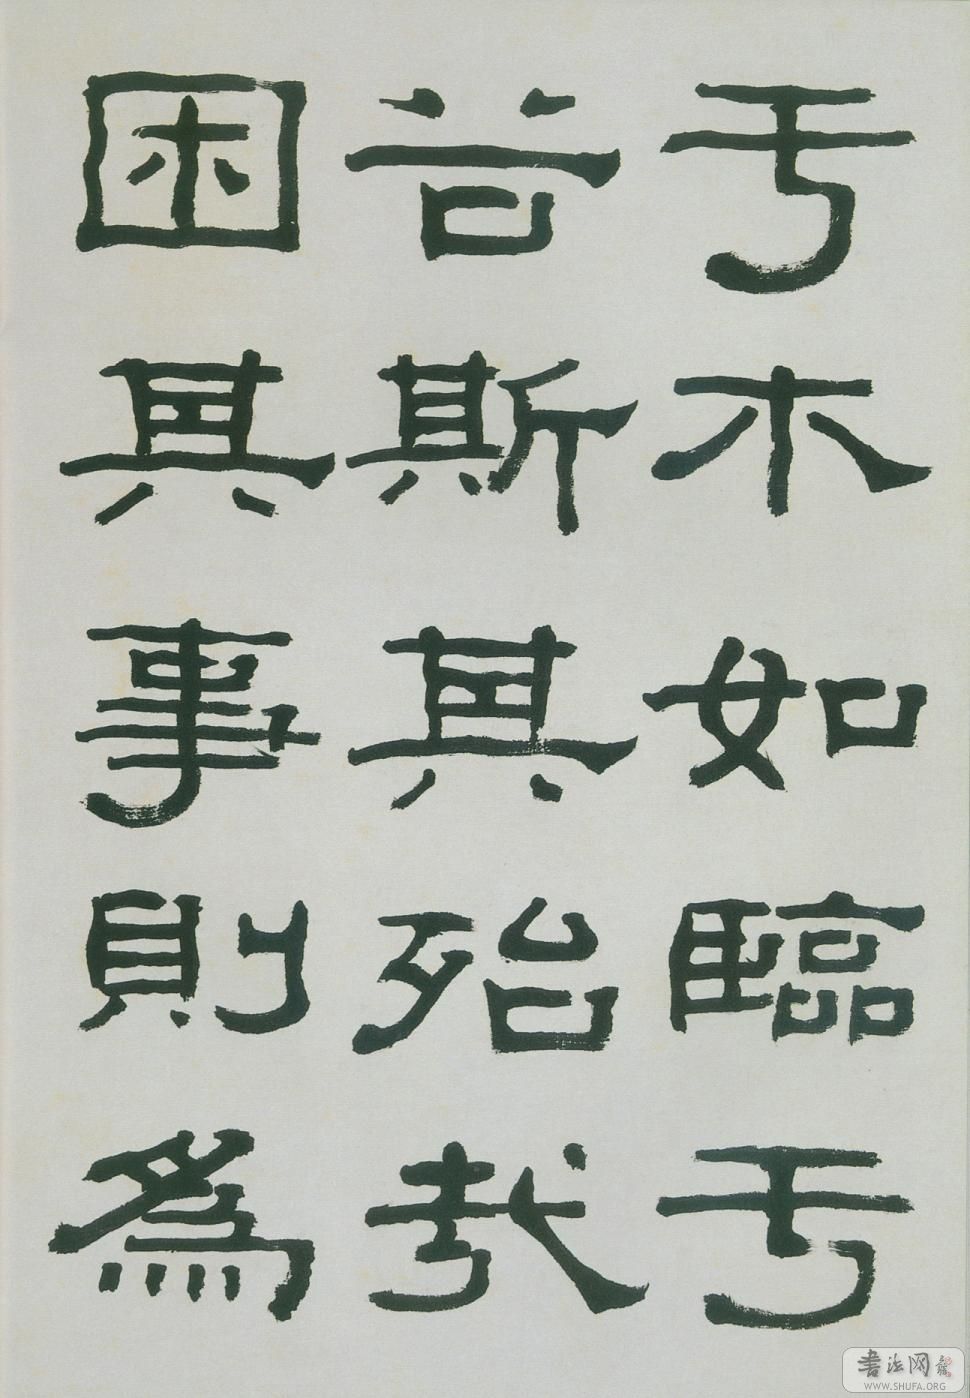 于木如臨于
谷斯其殆哉
困其事則爲
書法网
WWW.SHUFA.ORG